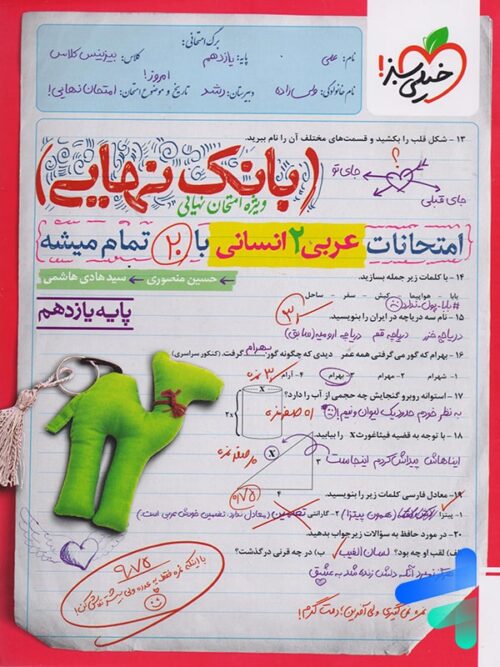 برگ امتحانی:
نام: علی
پایه: یازدهم
کلاس: بیزینس کلاس
نام خانوادگی: ولی‌زاده
دبیرستان: رشد
تاریخ و موضوع امتحان: امروز! امتحان نهایی!
خیلی سبز!
۱۳- شکل قلب را بکشید و قسمت‌های مختلف آن را نام ببرید.
؟
جای تو
جای قبلی
(بانک نهایی)
ویژه امتحان نهایی
{امتحانات عربی ۲ انسانی با ۲۰ تمام میشه}
حسین منصوری ← سید هادی هاشمی
پایه یازدهم
۱۴- با کلمات زیر جمله بسازید.
بابا - هواپیما - کیش - سفر - ساحل
#بابا_پول_ندارد
۱۵- نام سه دریاچه در ایران را بنویسید.
دریاچه خزر دریاچه قم دریاچه ارومیه (سابق)
۱۶- بهرام که گور می‌گرفتی همه عمر دیدی که چگونه گور بهرام گرفت. (کنکور سراسری)
۱- شهرام ۲- مهرام ۳- بهرام ۴- آرام
۱۷- استوانه روبرو گنجایش چه حجمی از آب را دارد؟
به نظر خودم حدود یک لیوان و نیم!
x
2x
۱۸- با توجه به قضیه فیثاغورث x را بیابید.
ایناهاش پیداش کردم اینجاست
x
۳
۴
۱۹- معادل فارسی کلمات زیر را بنویسید.
۱- پیتزا (همون پیتزا) ۲- گارانتی تضمین (معادل ندارد. تضمین خودش عربی است)
۲۰- در مورد حافظ به سؤالات زیر جواب بدهید.
الف) لقب او چه بود؟ لسان الغیب ب) در چه قرنی درگذشت؟
هرگز نمیرد آنکه دلش زنده شد به عشق